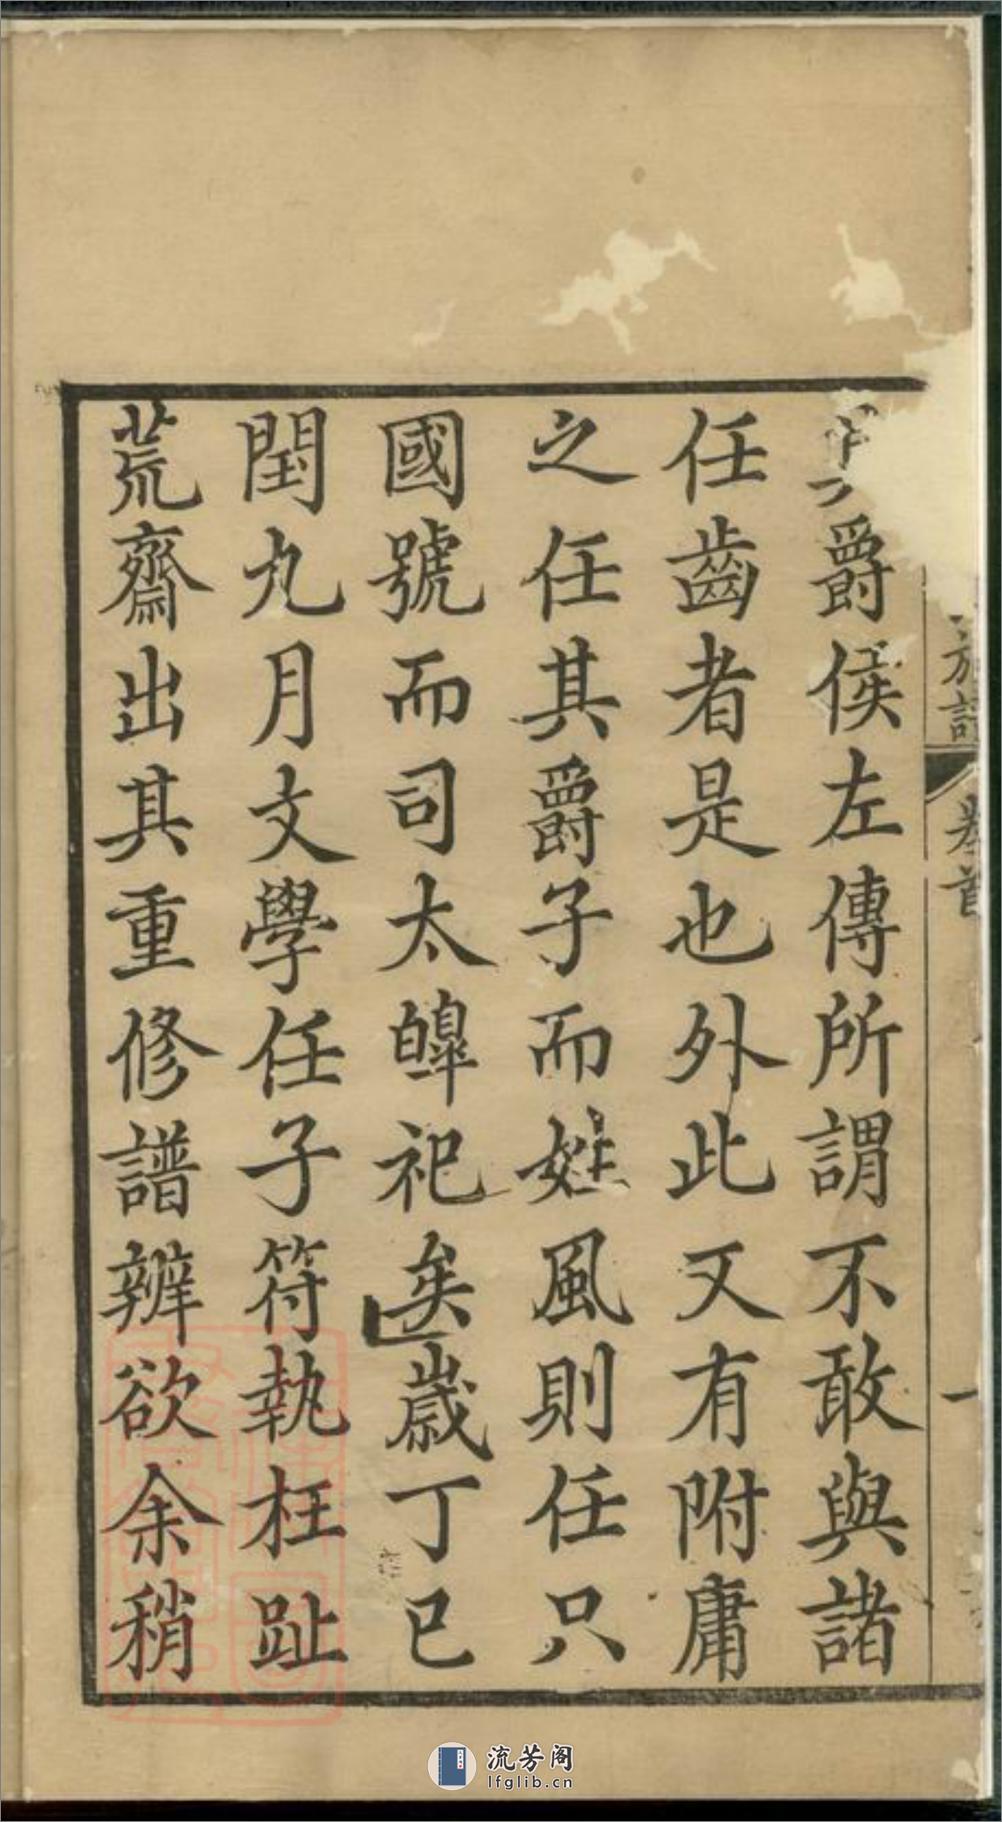 爵侯左傳所謂不敢與諸
任齒者是也外此又有附庸
之任其爵子而姓風則任只
國號而司太皥祀矣歲丁巳
閏九月文學任子符執枉趾
荒齋出其重修譜辨欲余稍
族譜
卷首
一
流芳阁
lfglib.cn